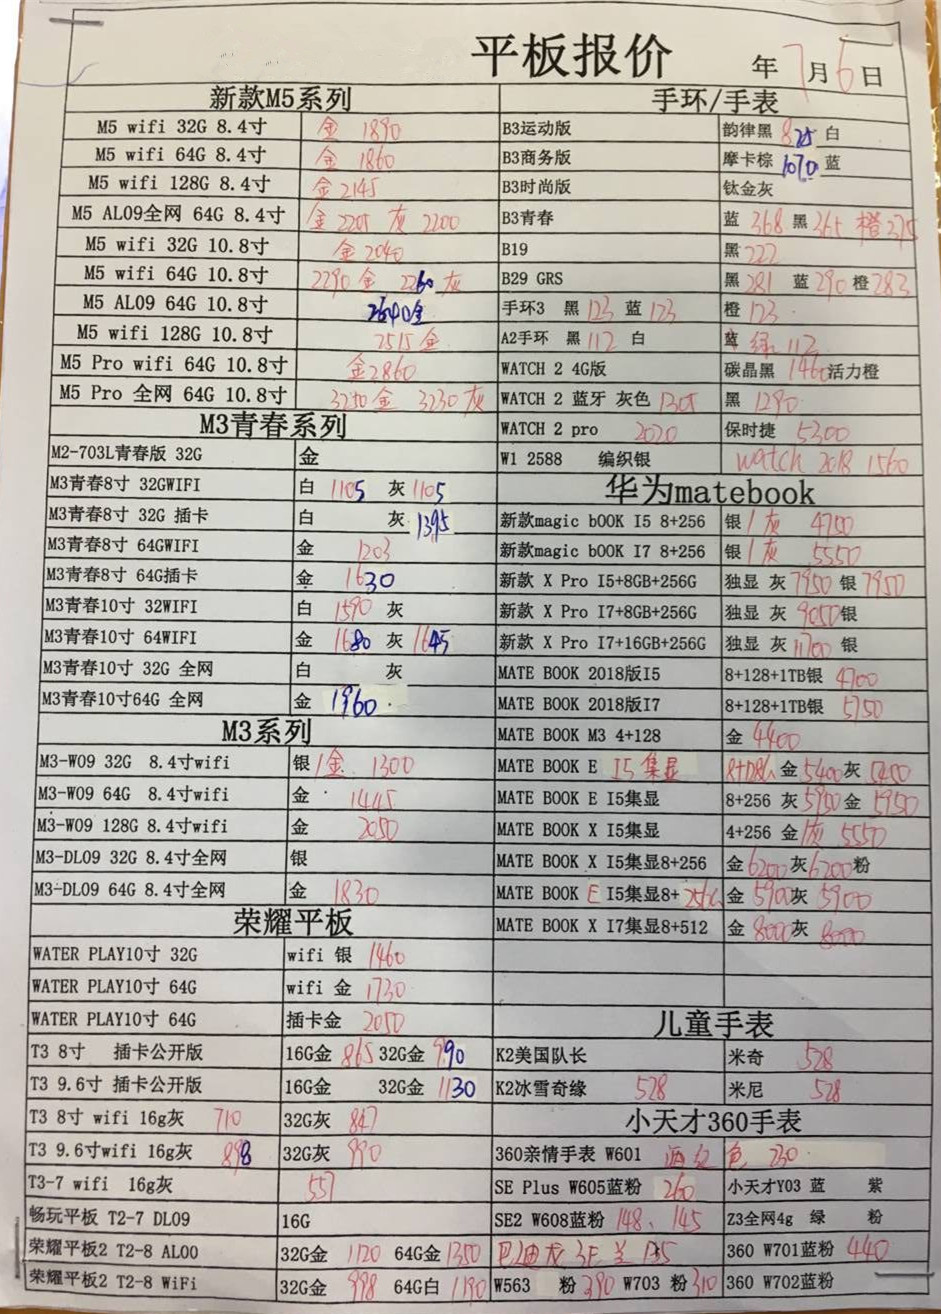 平板报价
年 7月6日
新款M5系列
M5 wifi 32G 8.4寸 金 1890
M5 wifi 64G 8.4寸 金 1860
M5 wifi 128G 8.4寸 金 2145
M5 AL09全网 64G 8.4寸 金 2205 灰 2200
M5 wifi 32G 10.8寸 金 2040
M5 wifi 64G 10.8寸 2290 金 2260 灰
M5 AL09 64G 10.8寸 2640金
M5 wifi 128G 10.8寸 2515 金
M5 Pro wifi 64G 10.8寸 金2860
M5 Pro 全网 64G 10.8寸 金 3230 灰
M3青春系列
M2-703L青春版 32G 金
M3青春8寸 32GWIFI 白 1105 灰 1105
M3青春8寸 32G 插卡 白 灰 1395
M3青春8寸 64GWIFI 金 1203
M3青春8寸 64G插卡 金 1630
M3青春10寸 32WIFI 白 1590 灰
M3青春10寸 64WIFI 金 1680 灰 1645
M3青春10寸 32G 全网 白 灰
M3青春10寸64G 全网 金 1960
M3系列
M3-W09 32G 8.4寸wifi 银/金 1300
M3-W09 64G 8.4寸wifi 金 1445
M3-W09 128G 8.4寸wifi 金 2050
M3-DL09 32G 8.4寸全网 银
M3-DL09 64G 8.4寸全网 金 1830
荣耀平板
WATER PLAY10寸 32G wifi 银 1460
WATER PLAY10寸 64G wifi 金 1730
WATER PLAY10寸 64G 插卡金 2050
T3 8寸 插卡公开版 16G金 865 32G金 990
T3 9.6寸 插卡公开版 16G金 32G金 1130
T3 8寸 wifi 16g灰 710 32G灰 847
T3 9.6寸wifi 16g灰 898 32G灰 990
T3-7 wifi 16g灰 557
畅玩平板 T2-7 DL09 16G
荣耀平板2 T2-8 AL00 32G金 1120 64G金 1350
荣耀平板2 T2-8 WiFi 32G金 998 64G白 1190
手环/手表
B3运动版 韵律黑 825 白
B3商务版 摩卡棕 1070 蓝
B3时尚版 钛金灰
B3青春 蓝 368 黑 365 橙 375
B19 黑 222
B29 GRS 黑 281 蓝 290 橙 283
手环3 黑 123 蓝 123 橙 123
A2手环 黑 112 白 蓝 绿 112
WATCH 2 4G版 碳晶黑 1460 活力橙
WATCH 2 蓝牙 灰色 1305 黑 1290
WATCH 2 pro 2020 保时捷 5300
W1 2588 编织银 watch 2018 1560
华为matebook
新款magic bOOK I5 8+256 银/灰 4750
新款magic bOOK I7 8+256 银/灰 5550
新款 X Pro I5+8GB+256G 独显 灰 7950 银 7950
新款 X Pro I7+8GB+256G 独显 灰 9050 银
新款 X Pro I7+16GB+256G 独显 灰 11700 银
MATE BOOK 2018版I5 8+128+1TB银 4700
MATE BOOK 2018版I7 8+128+1TB银 5750
MATE BOOK M3 4+128 金 4400
MATE BOOK E I5集显 金 5400 灰 5400
MATE BOOK E I5集显 8+256 灰 5950 金 5950
MATE BOOK X I5集显 4+256 金/灰 5550
MATE BOOK X I5集显8+256 金 6200 灰 6200 粉
MATE BOOK E I5集显8+256G 金 5900 灰 5900
MATE BOOK X I7集显8+512 金 8000 灰 8000
儿童手表
K2美国队长 米奇 528
K2冰雪奇缘 528 米尼 528
小天才360手表
360亲情手表 W601 红 色 230
SE Plus W605蓝粉 260 小天才Y03 蓝 紫
SE2 W608蓝粉 148、145 Z3全网4g 绿 粉
巴迪龙 3E 兰 135 360 W701蓝粉 440
W563 粉 390 W703 粉 310 360 W702蓝粉